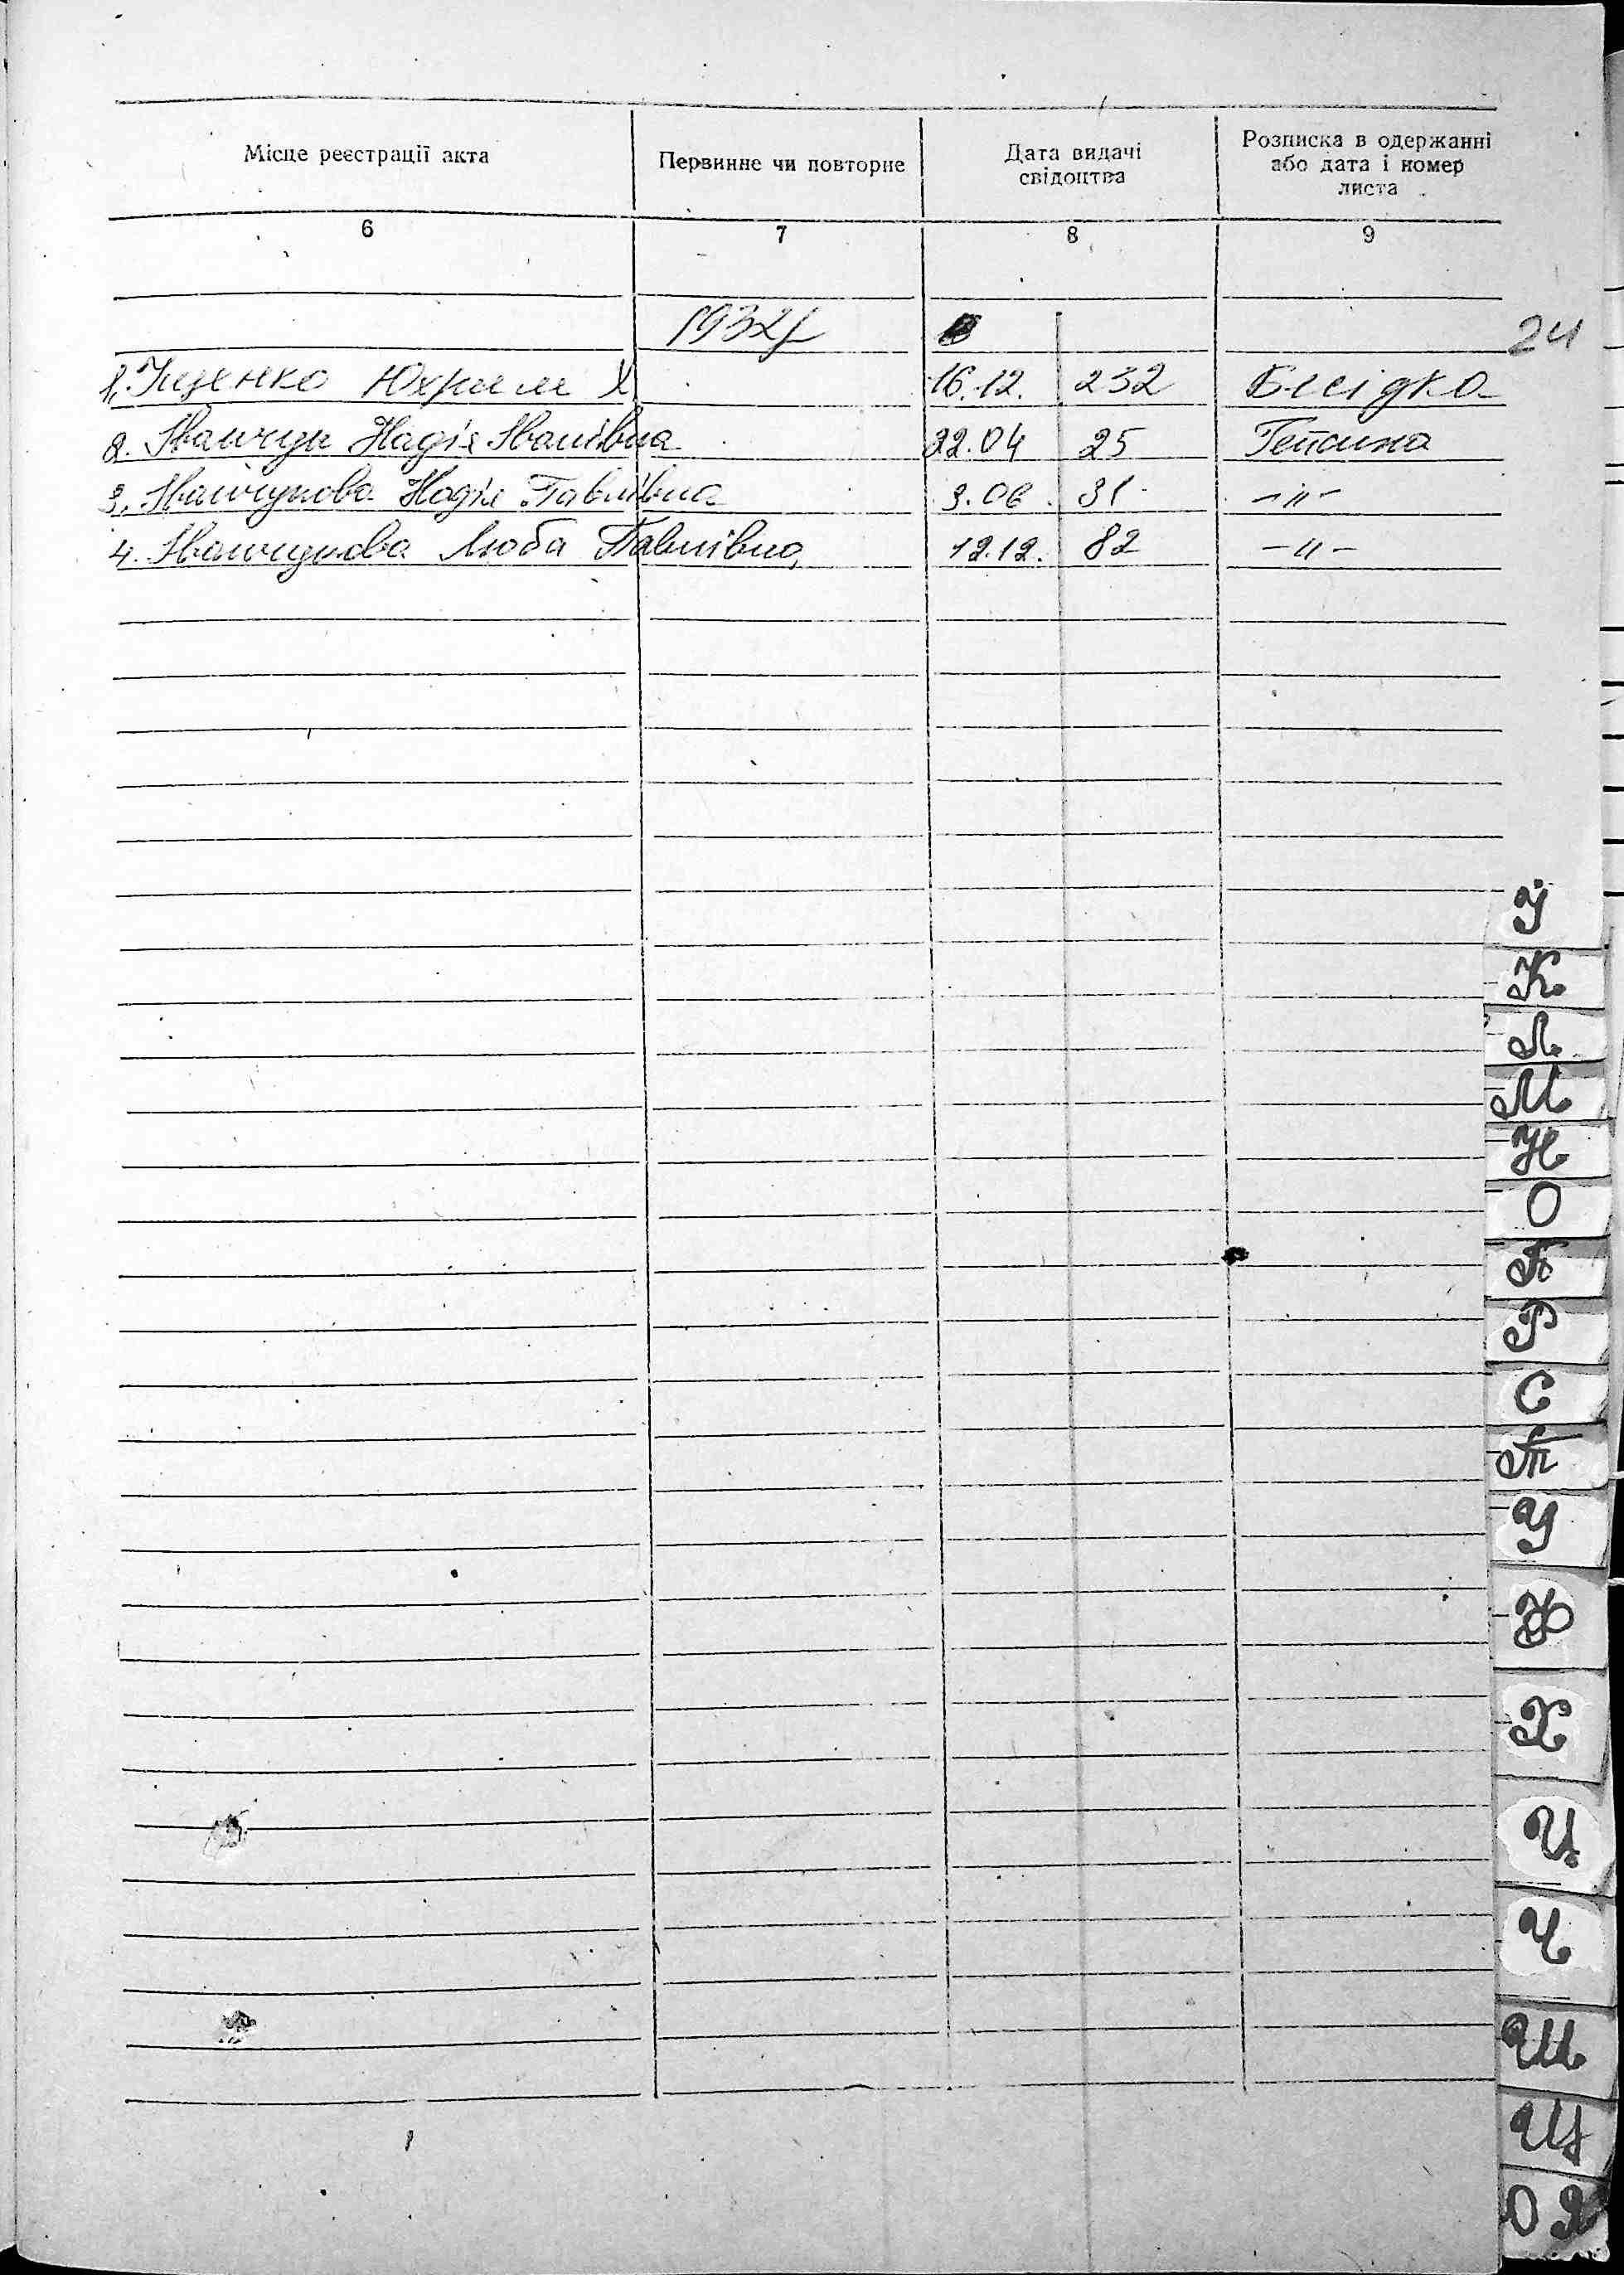 Місце реєстрації акта
Первинне чи повторне
Дата видачі
свідоцтва
Розписка в одержанні
або дата і номер
листа
6 7 8 9
1932р
24
1. Іщенко Юхим Х 16.12. 232
2. Іванчук Надія Іванівна 22.04 25 Гепсина
3. Іванчукова Надія Павлівна 3.06. 31 -"-
4. Іванчукова Люба Павлівна 12.12. 82 -"-
Й
К
Л
М
Н
О
П
Р
С
Т
У
Ф
Х
Ц
Ч
Ш
Щ
Ю Я